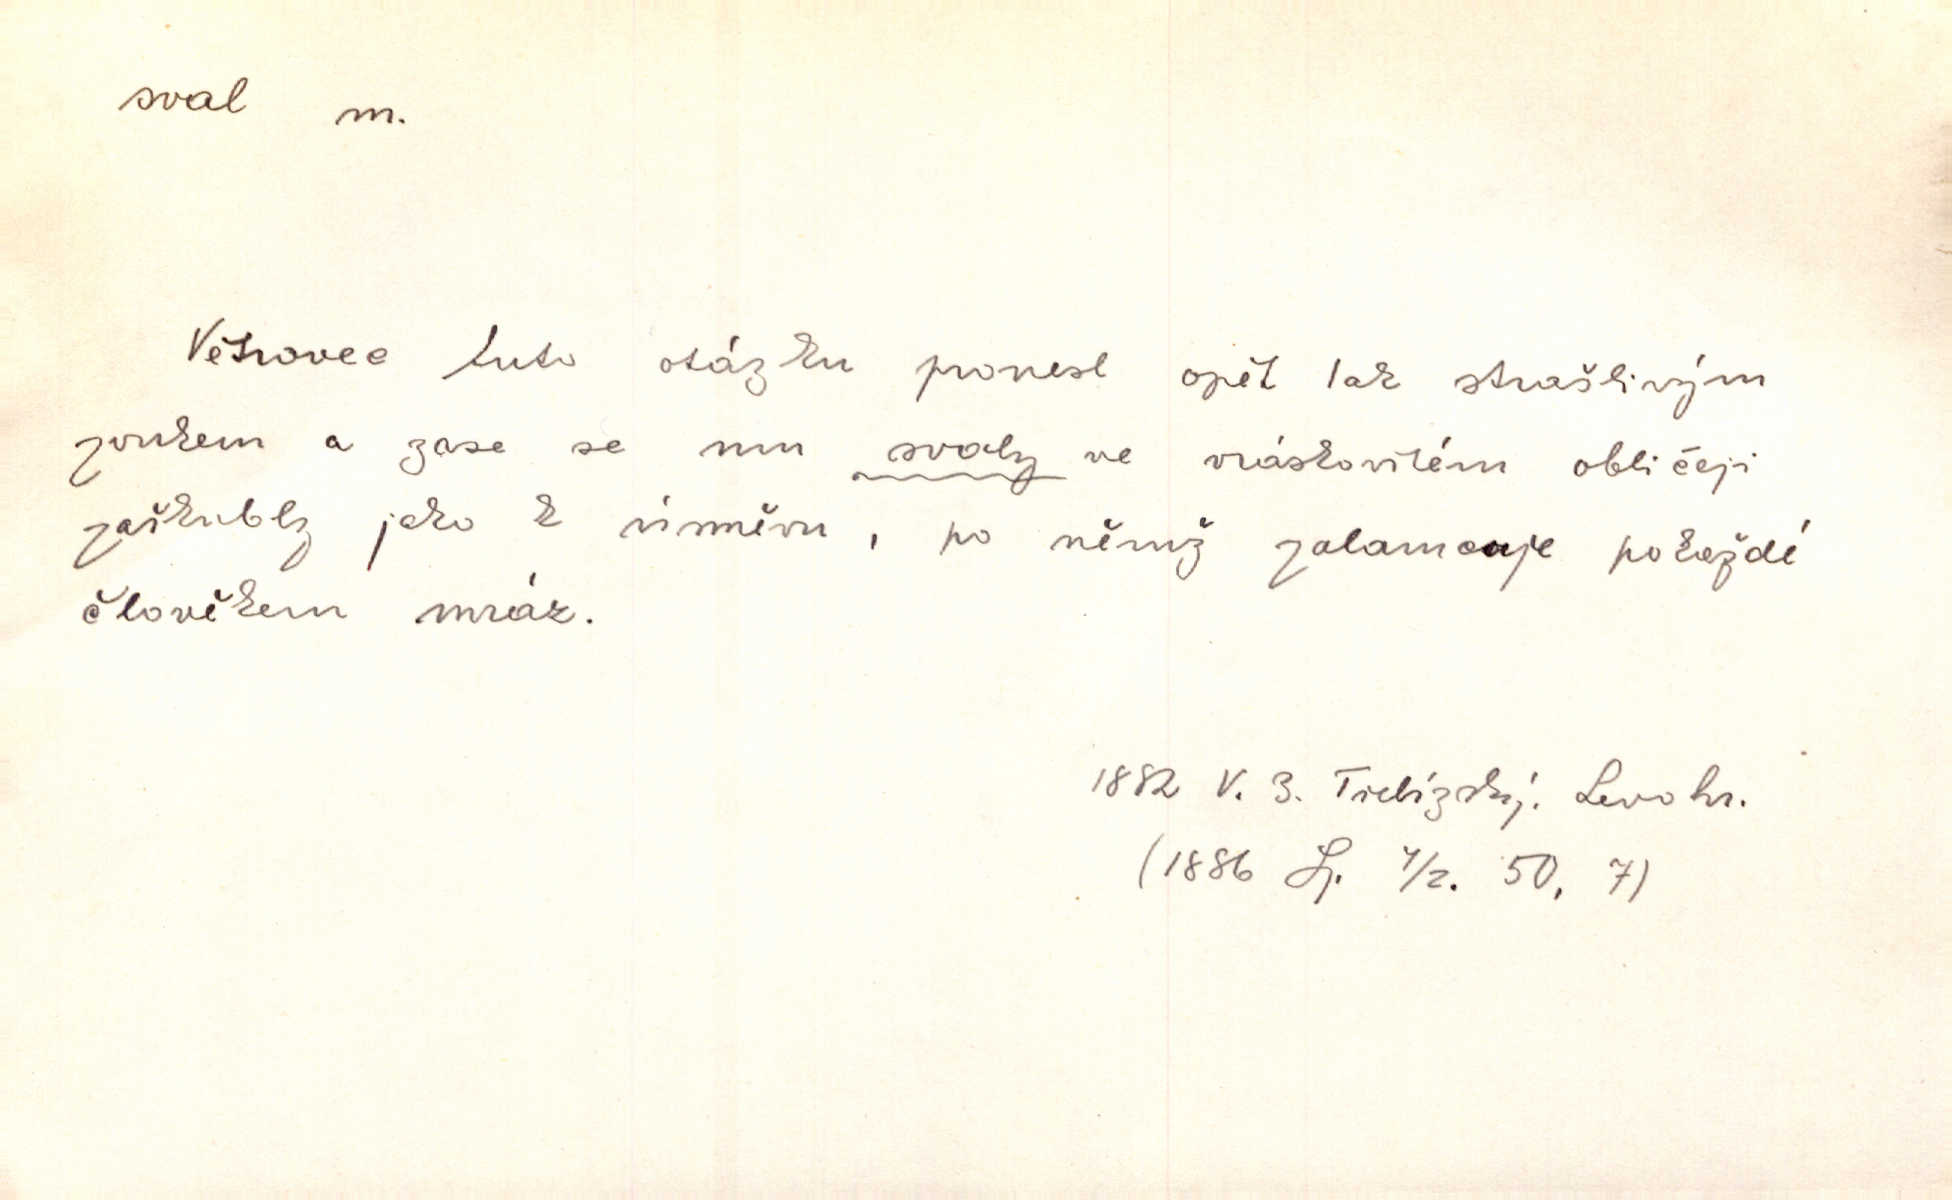 sval m.
Větrovec tuto otázku pronesl opět tak strašlivým
zvukem a zase se mu svaly ve vráskovitém obličeji
zaškubly jako k úsměvu, po němž zalamcuje pokaždé
člověkem mráz.
1882 V. B. Třebízský. Levohr.
(1886 Sp. 4/2. 50, 7)